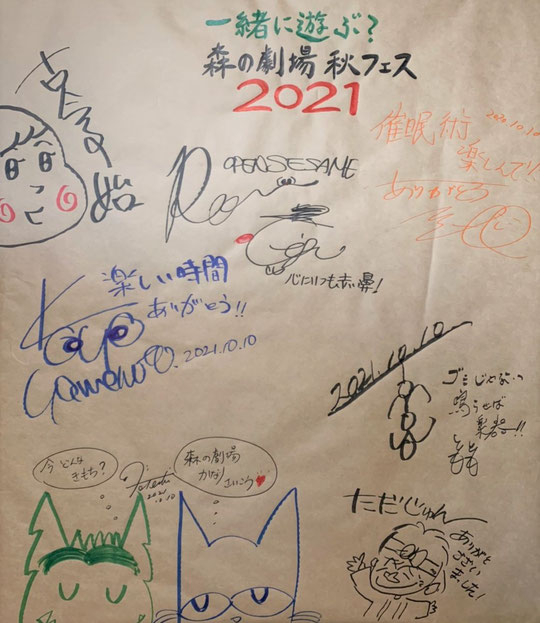 一緒に遊ぶ?
森の劇場 秋フェス
2021
催眠術
2021.10.10
楽しんで!!
ありがとう
OPENSESAME
心にいつも赤い鼻!
楽しい時間
ありがとう!!
2021.10.10
2021.10.10.
ゴミじゃないっ
鳴らせば
楽器ー!!
もも
今どんな
きもち?
2021
10.10
森の劇場
かな♪
さいこう
ただじゅん
ありがとう
ござい
ました!